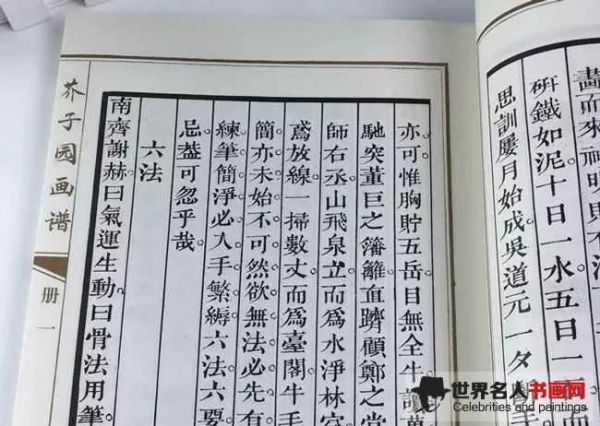 畫而來神明
硏鐵如泥十日一水五日一
思訓屢月始成吳道元一夕
亦可惟胸貯五岳目無全牛讀
馳突董巨之籓籬直躋顧鄭之堂
師右丞山飛泉立而爲水淨林
鳶放線一掃數丈而爲臺閣牛毛
簡亦未始不可然欲無法必先有
練筆簡淨必入手繁縟六法六要
忌葢可忽乎哉
六法
南齊謝赫曰氣運生動曰骨法用筆
芥子园画谱
册一
世界名人书画网
Celebrities and paintings